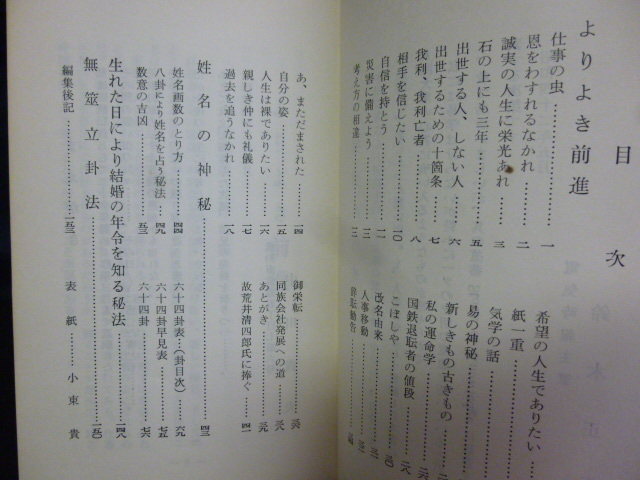 目次
よりよき前進
仕事の虫………一
恩をわすれるなかれ………二
誠実の人生に栄光あれ………三
石の上にも三年………五
出世する人、しない人………六
出世するための十箇条………七
我利、我利亡者………八
相手を信じたい………一〇
自信を持とう………一一
災害に備えよう………一二
考え方の相違………一三
希望の人生でありたい
紙一重
気学の話
易の神秘
新しきもの古きもの
私の運命学
国鉄退転者の値段
こぼしや
改名由来
人事移動
あ、まただまされた………一四
自分の姿………一五
人生は裸でありたい………一六
親しき仲にも礼儀………一七
過去を追うなかれ………一八
御栄転
同族会社発展への道
あとがき
故荒井清四郎氏に捧ぐ………四一
姓名の神秘………四三
姓名画数のとり方………四四
八卦により姓名を占う秘法………四九
数意の吉凶………五三
六十四卦表…(卦目次)………六九
六十四卦早見表………七五
六十四卦………七六
生れた日により結婚の年令を知る秘法………一四八
無筮立卦法………一五〇
編集後記………一五三
表紙………小東貴